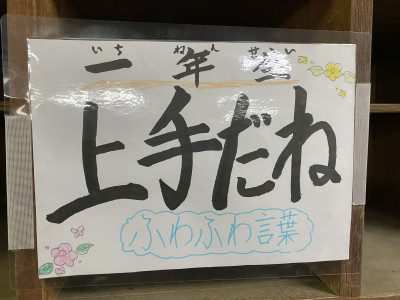 いちねんせい
一年生
上手だね
ふわふわ言葉